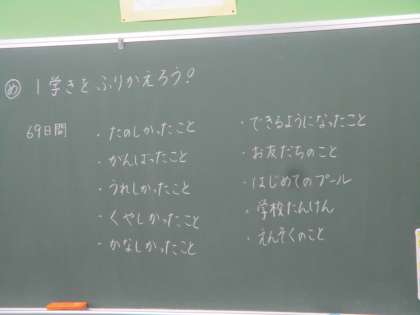 め 1学きをふりかえろう?
69日間
・たのしかったこと
・がんばったこと
・うれしかったこと
・くやしかったこと
・かなしかったこと
・できるようになったこと
・お友だちのこと
・はじめてのプール
・学校たんけん
・えんそくのこと